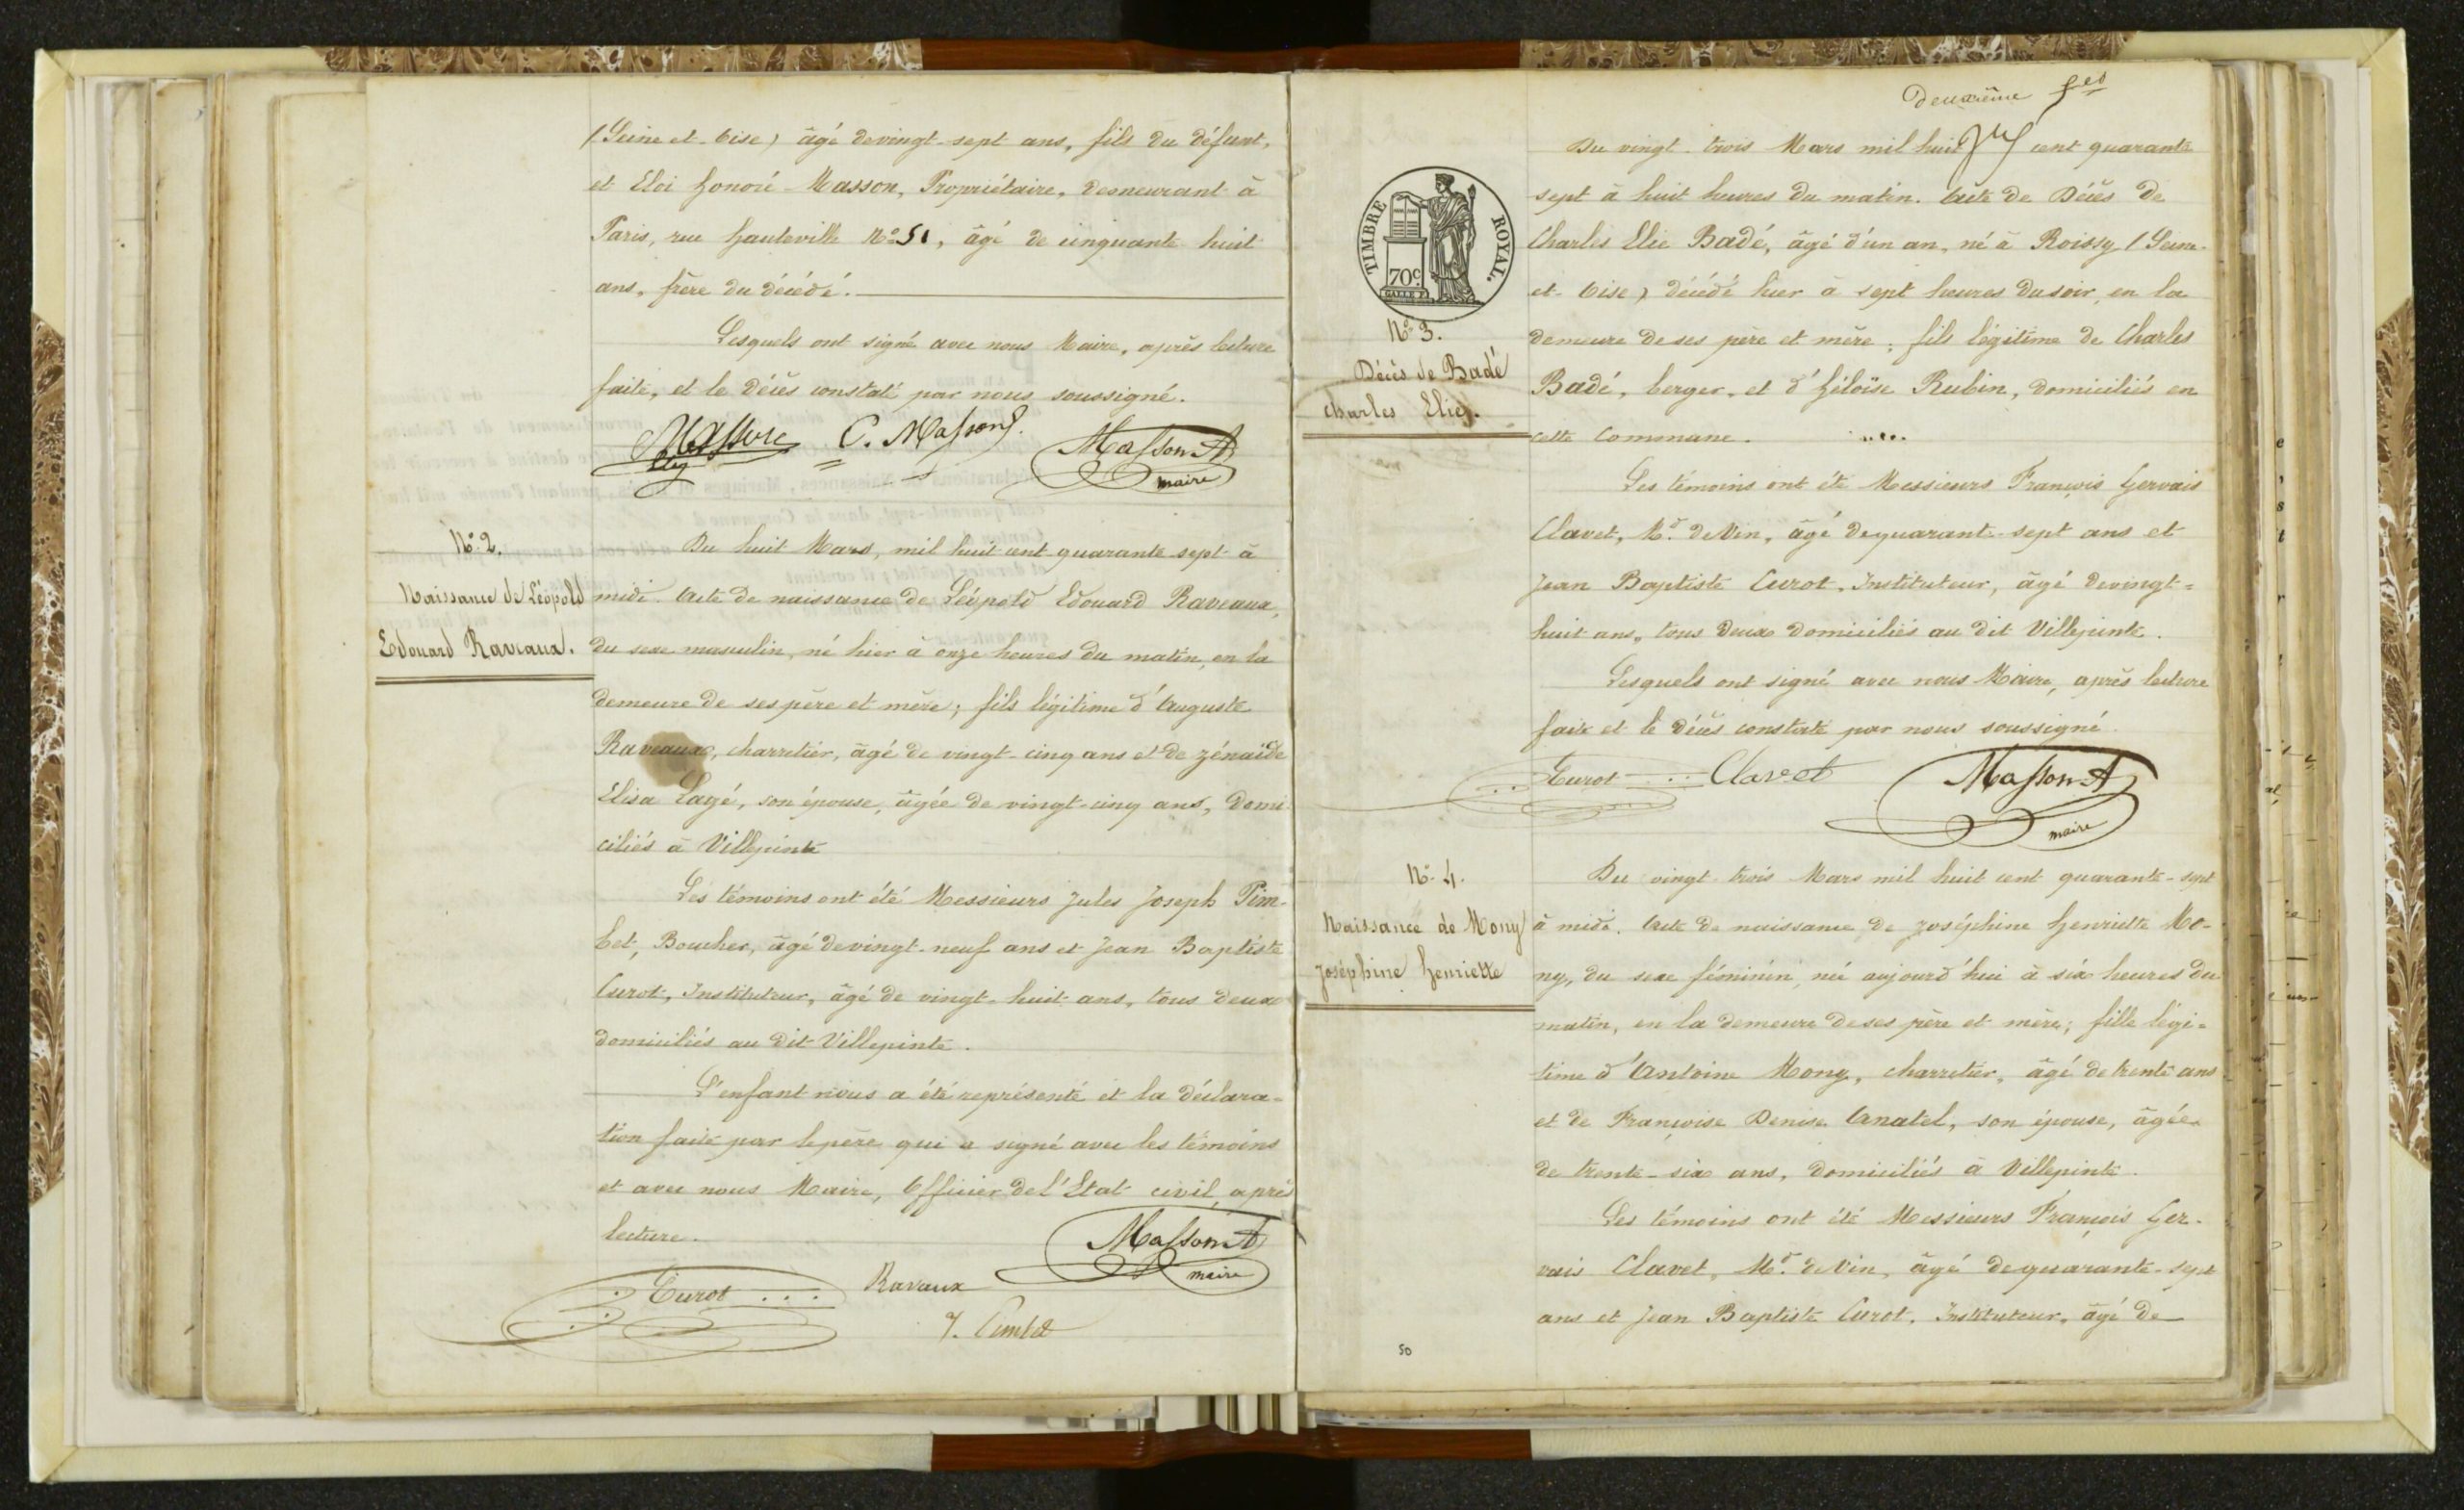 (Seine et Oise) âgé de vingt-sept ans, fils du défunt,
et Eloi honoré Masson, Propriétaire, demeurant à
Paris, rue hauteville N° 51, âgé de cinquante huit
ans, frère du décédé.
Lesquels ont signé avec nous Maire, après lecture
faite, et le décès constaté par nous soussigné.
Masson C. Masson Masson A
maire
N° 2.
Naissance de Léopold
Edouard Raveaux.
Du huit Mars, mil huit cent quarante sept à
midi. Acte de naissance de Léopold Edouard Raveaux,
du sexe masculin, né hier à onze heures du matin, en la
demeure de ses père et mère; fils légitime d'Auguste
Raveaux, charretier, âgé de vingt-cinq ans et de Zénaïde
Elisa Lagé, son épouse, âgée de vingt-cinq ans, domi
ciliés à Villepinte
Les témoins ont été Messieurs Jules Joseph Pim-
bet, Boucher, âgé de vingt-neuf ans et Jean Baptiste
Curot, Instituteur, âgé de vingt-huit ans, tous deux
domiciliés au dit Villepinte.
L'enfant nous a été représenté et la déclara-
tion faite par le père qui a signé avec les témoins
et avec nous Maire, Officier de l'Etat civil, après
lecture.
Masson A
maire
Curot Ravaux
J. Pimbet
Deuxième
TIMBRE ROYAL.
70c
N° 3.
Décès de Badé
Charles Elie.
Du vingt-trois Mars mil huit cent quarante
sept à huit heures du matin. Acte de Décès de
Charles Elie Badé, âgé d'un an, né à Roissy (Seine-
et-Oise) décédé hier à sept heures du soir, en la
demeure de ses père et mère; fils légitime de Charles
Badé, berger, et d'héloïse Rubin, domiciliés en
cette Commune.
Les témoins ont été Messieurs François Gervais
Clavet, Md. de Vin, âgé de quarant-sept ans et
Jean Baptiste Curot, Instituteur, âgé de vingt-
huit ans, tous deux domiciliés au dit Villepinte.
Lesquels ont signé avec nous Maire, après lecture
faite et le décès constaté par nous soussigné.
Curot Clavet Masson A
maire
N° 4.
Naissance de Mony
Joséphine henriette
Du vingt-trois Mars mil huit cent quarante-sept
à midi. Acte de naissance de Joséphine henriette Mo-
ny, du sexe féminin, née aujourd'hui à six heures du
matin, en la demeure de ses père et mère; fille légi-
time d'Antoine Mony, charretier, âgé de trente ans
et de Françoise Denise Anatel, son épouse, âgée
de trente-six ans, domiciliés à Villepinte.
Les témoins ont été Messieurs François Ger-
vais Clavet, Md. de Vin, âgé de quarante-sept
ans et Jean Baptiste Curot, Instituteur, âgé de
50